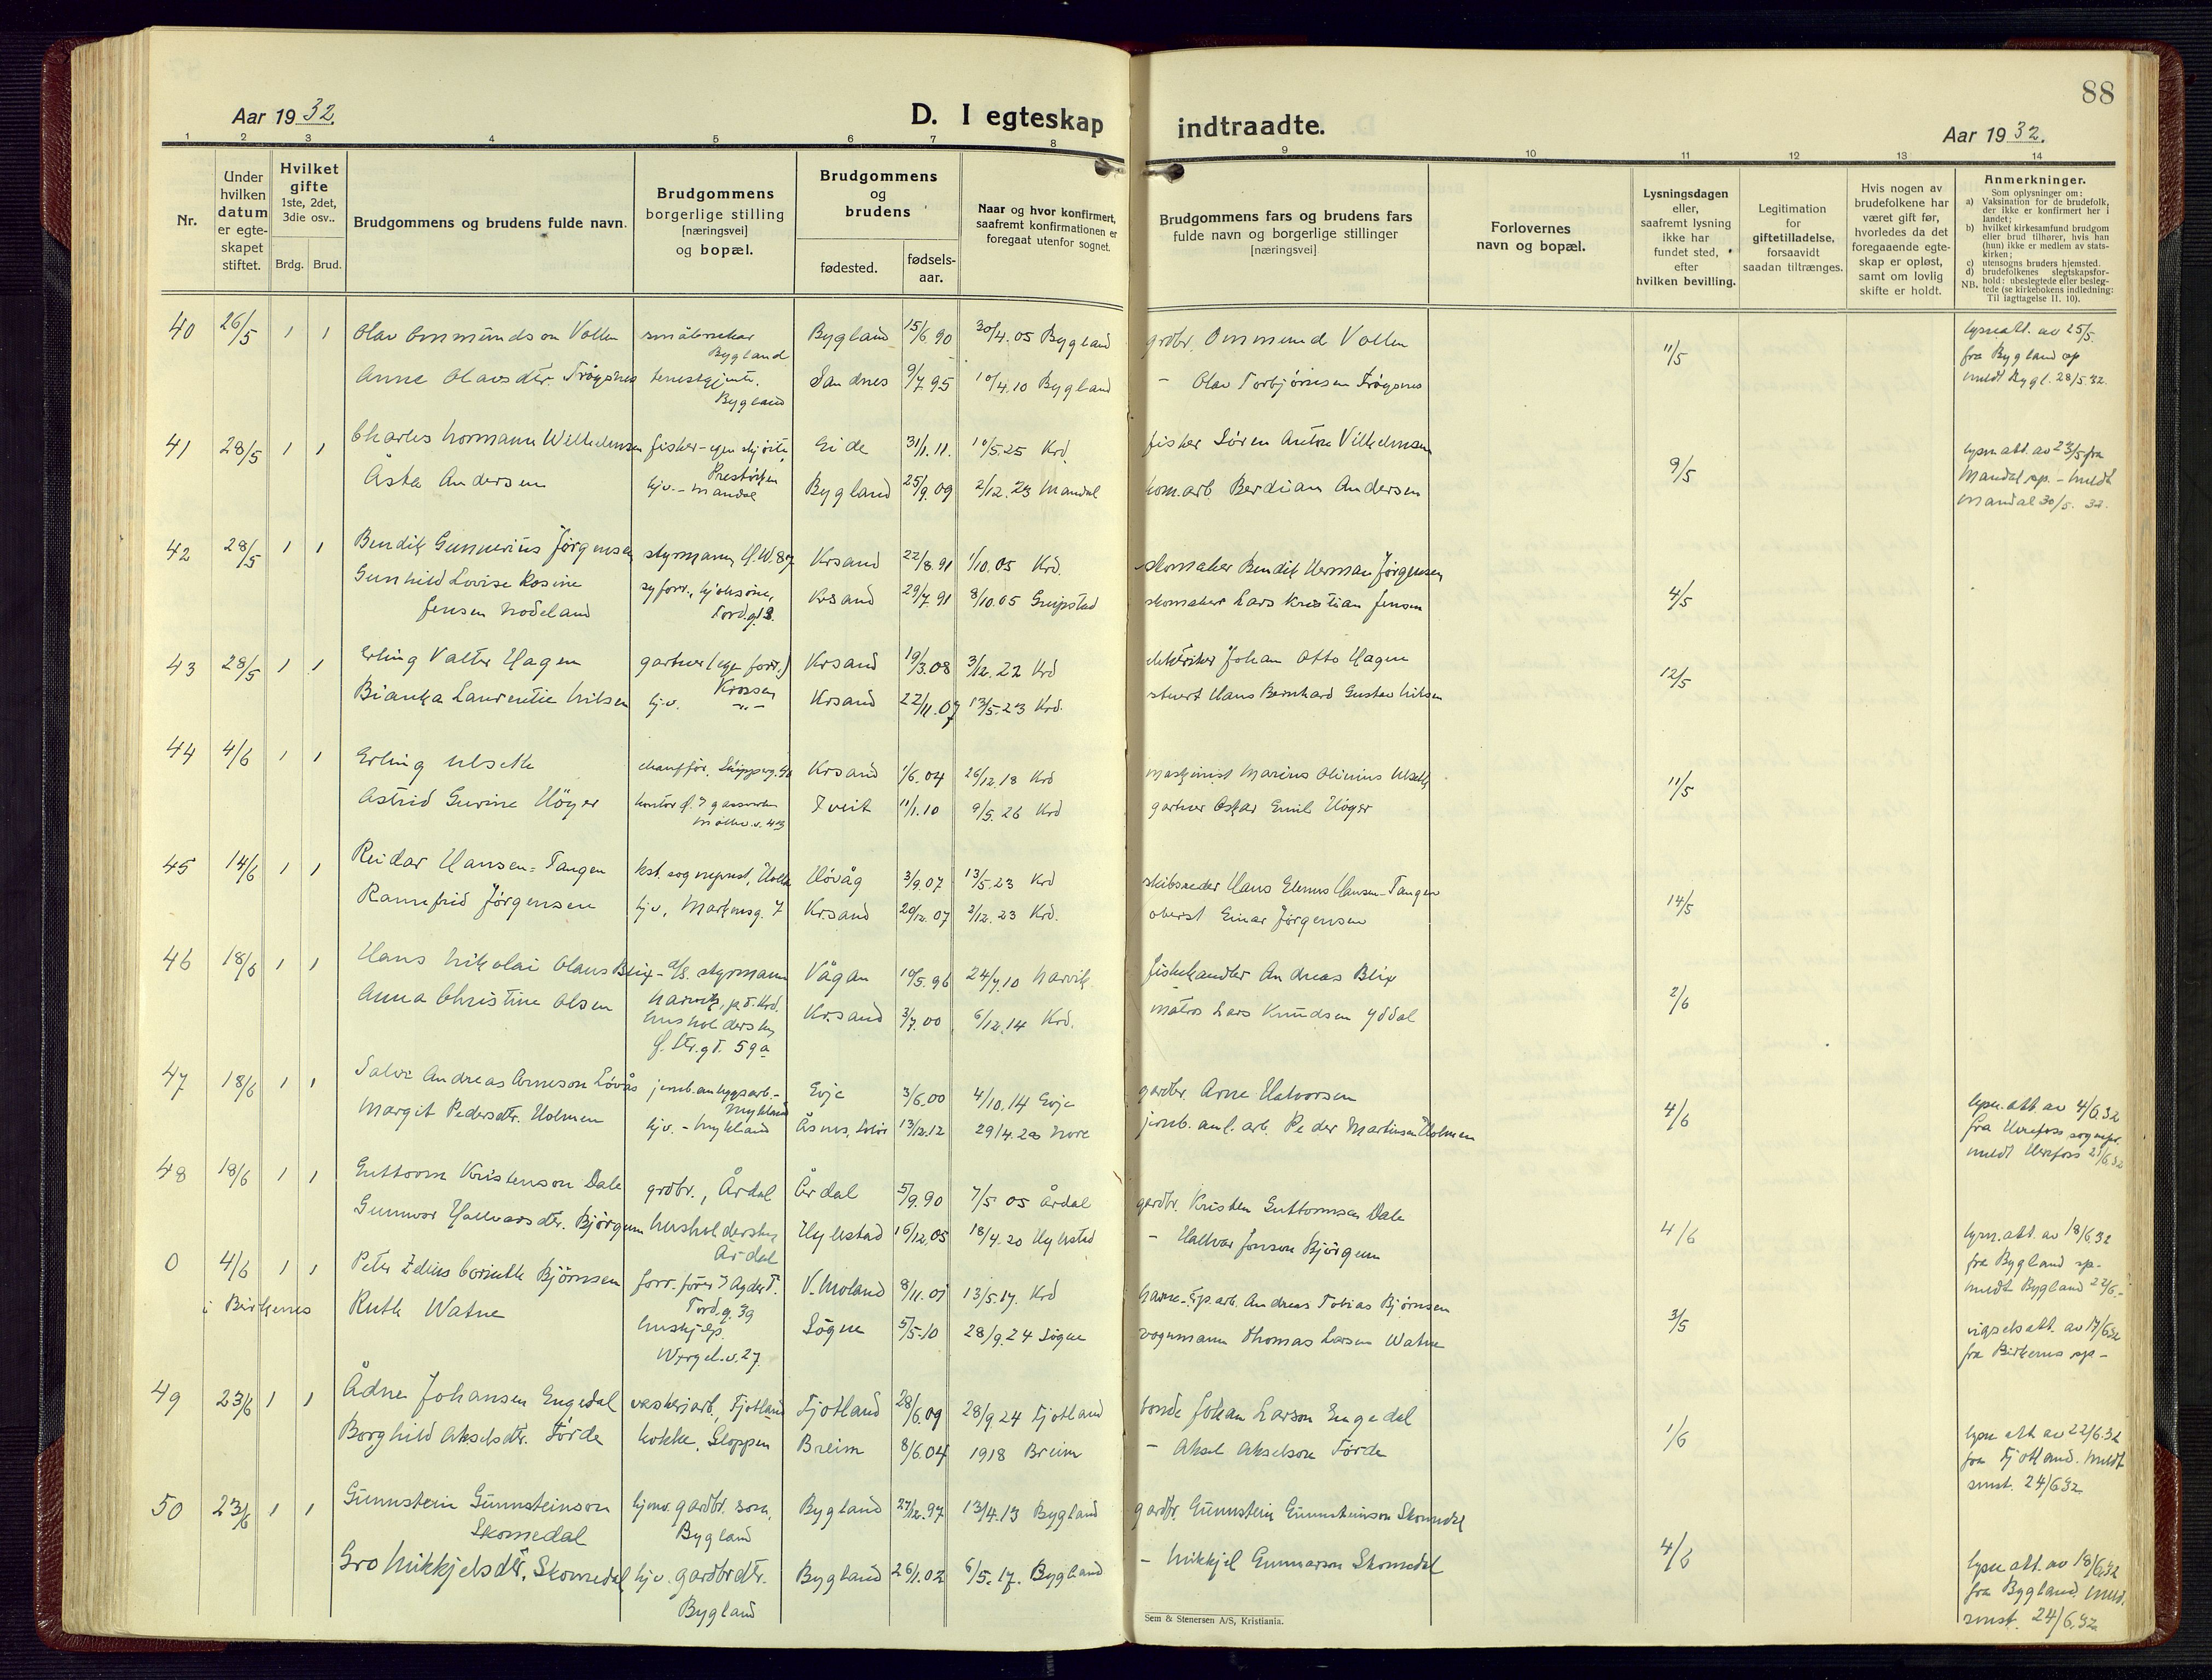 88
Aar 1932.
D. I egteskap indtraadte.
Aar 1932.
1 2 3 4 5 6 7 8 9 10 11 12 13 14
Nr.
Under hvilken datum er egte-skapet stiftet.
Hvilket gifte 1ste, 2det, 3die osv..
Brdg. Brud.
Brudgommens og brudens fulde navn.
Brudgommens borgerlige stilling [næringsvei] og bopæl.
Brudgommens og brudens
fødested. fødsels-aar.
Naar og hvor konfirmert, saafremt konfirmationen er foregaat utenfor sognet.
Brudgommens fars og brudens fars fulde navn og borgerlige stillinger [næringsvei]
Forlovernes navn og bopæl.
Lysningsdagen eller, saafremt lysning ikke har fundet sted, efter hvilken bevilling.
Legitimation for giftetilladelse, forsaavidt saadan tiltrænges.
Hvis nogen av brudefolkene har været gift før, hvorledes da det foregaaende egte-skap er opløst, samt om lovlig skifte er holdt.
Anmerkninger.
Som oplysninger om:
a) Vaksination for de brudefolk, der ikke er konfirmert her i landet;
b) hvilket kirkesamfund brudgom eller brud tilhører, hvis han (hun) ikke er medlem av stats-kirken;
c) utensogns bruders hjemsted.
d) brudefolkenes slegtskapsfor-hold: ubeslegtede eller besleg-tede (se kirkebokens indledning: NB. Til iagttagelse II. 10).
40 26/5 1 1 Olav Ommundson Vollen småbruker Bygland Bygland 15/6 90 30/4.05 Bygland grdbr. Ommund Vollen 11/5 lysn.att. av 25/5. fra Bygland sp
Anne Olavsdtr. Frøysnes tenestgjente. Bygland Sandnes 9/7 95 10/4.10 Bygland - Olav Torbjørnsen Frøysnes meldt Bygl. 28/5.32.
41 28/5 1 1 Charles Normann Wilhelmsen fisker - egen skjöite Eide 31/1.11. 10/5.25 Krd. fisker Sören Anton Vilhelmsen 9/5 lysn.att. av 23/5 fra
Åsta Andersen hjv. - Mandal Bygland 25/9.09 2/12.23 Mandal kom.arb. Berdian Andersen Mandal sp. - meldt Mandal 30/5. 32.
42 28/5 1 1 Bendik Gunnerius Jörgensen styrmann, Krsand 22/8.91 1/10.05 Krd. skomaker Bendik Herman Jørgensen 4/5
Gunhild Lovise Rosine Jensen Nodeland syforr., Tord.gt 3. Krsand 29/7.91 8/10.05 Greipstad skomaker Lars Kristian Jensen
43 28/5 1 1 Erling Valter Hagen gartner (egen forr.) Krossen Krsand 19/3.08 3/12.22 Krd elektriker Johan Otto Hagen 12/5
Bianka Laurentie Nilsen hj.v. -"- Krsand 22/11.07 13/5.23 Krd. stuert Hans Bernhard Gustav Nilsen
44 4/6 1 1 Erling Ulseth chauffør, Krsand 1/6.04 26/12.18 Krd maskinist Marius Olinius Ulseth 11/5
Astrid Gurine Höyer Tveit 11/1.10 9/5.26 Krd gartner Oskar Emil Höyer
45 14/6 1 1 Reidar Hansen-Tangen kst. sogneprest, Hövåg 3/9.07 13/5.23 Krd skibsreder Hans Elenus Hansen-Tangen 14/5
Rannfrid Jörgensen hjv, Markensg. 7 Krsand 20/12.07 2/12.23 Krd. oberst Einar Jørgensen
46 18/6 1 1 Hans Nikolai Olaus Blix - styrmann Narvik, p.t. Krd. Vågan 10/5.96 24/7.10 Narvik. fiskehandler Andreas Blix 2/6
Anna Christine Olsen husholderske Ö. Str.gt. 59a Krsand 3/7.00 6/12.14 Krd. matros Lars Knudsen Yddal
47 18/6 1 1 Salve Andreas Arneson Lövås jernb.anleggsarb. - Mykland Evje 3/6.00 4/10.14 Evje gardbr. Arne Halvorsen 4/6 lysn.att. av 4/6.32
Margit Pedersdtr. Holmen hjv. - Mykland Åsnes, Solör 13/12.12 29/4.28 Nore jernb. anl. arb. Peder Martinsen Holmen fra Herefoss sognepr. meldt Herefoss 21/6.32
48 18/6 1 1 Guttorm Kristenson Dale grdbr., Årdal Årdal 5/9.90 7/5 05 Årdal gardbr. Kristen Guttormsen Dale 4/6 lysn.att. av 18/6.32
Gunnvor Hallvarsdtr. Björgum husholderske Årdal Hylestad 16/12.05 18/4.20 Hylestad - Hallvar Jonson Bjørgum fra Bygland sp. meldt Bygland 22/6.-
0 4/6 1 1 Peter Zelius Cornelie Björnsen forr. fører, Tord.g. 39 V. Moland 8/11.01 13/5.17. Krd Andreas Tobias Bjørnsen 3/5 vigselsatt. av 17/6.32
i Birkenes Ruth Watne hushjelp. Wergel.v. 27 Sögne 5/5.10 28/9.24 Sögne vognmann Thomas Larsen Watne fra Birkenes sp -
49 23/6 1 1 Ådne Johansen Engedal veskeriarb, Fjotland Fjotland 28/6.09 28/9 24 Fjotland bonde Johan Larson Engedal 1/6 lysn att av 22/6.32
Borghild Akselsdtr. Förde kokke, Gloppen Breim 8/6.04 1918 Breim - Aksel Akselson Förde fra Fjotland. Meldt smst. 24/6.32
50 23/6 1 1 Gunnstein Gunnsteinson Skomedal hjmv. gardbr. son, Bygland Bygland 27/12.97 13/4.13 Bygland gardbr. Gunnstein Gunnsteinson Skomedal 4/6
Gro Mikkjelsdtr. Skomedal hjv. gardbrdtr. Bygland Bygland 26/1.02 6/5.17. Bygland - Mikkjel Gunnarson Skomedal lysn.att. av 18/6.32 fra Bygland. Meld. smst. 24/6.32
Sem & Stenersen A/S, Kristiania.